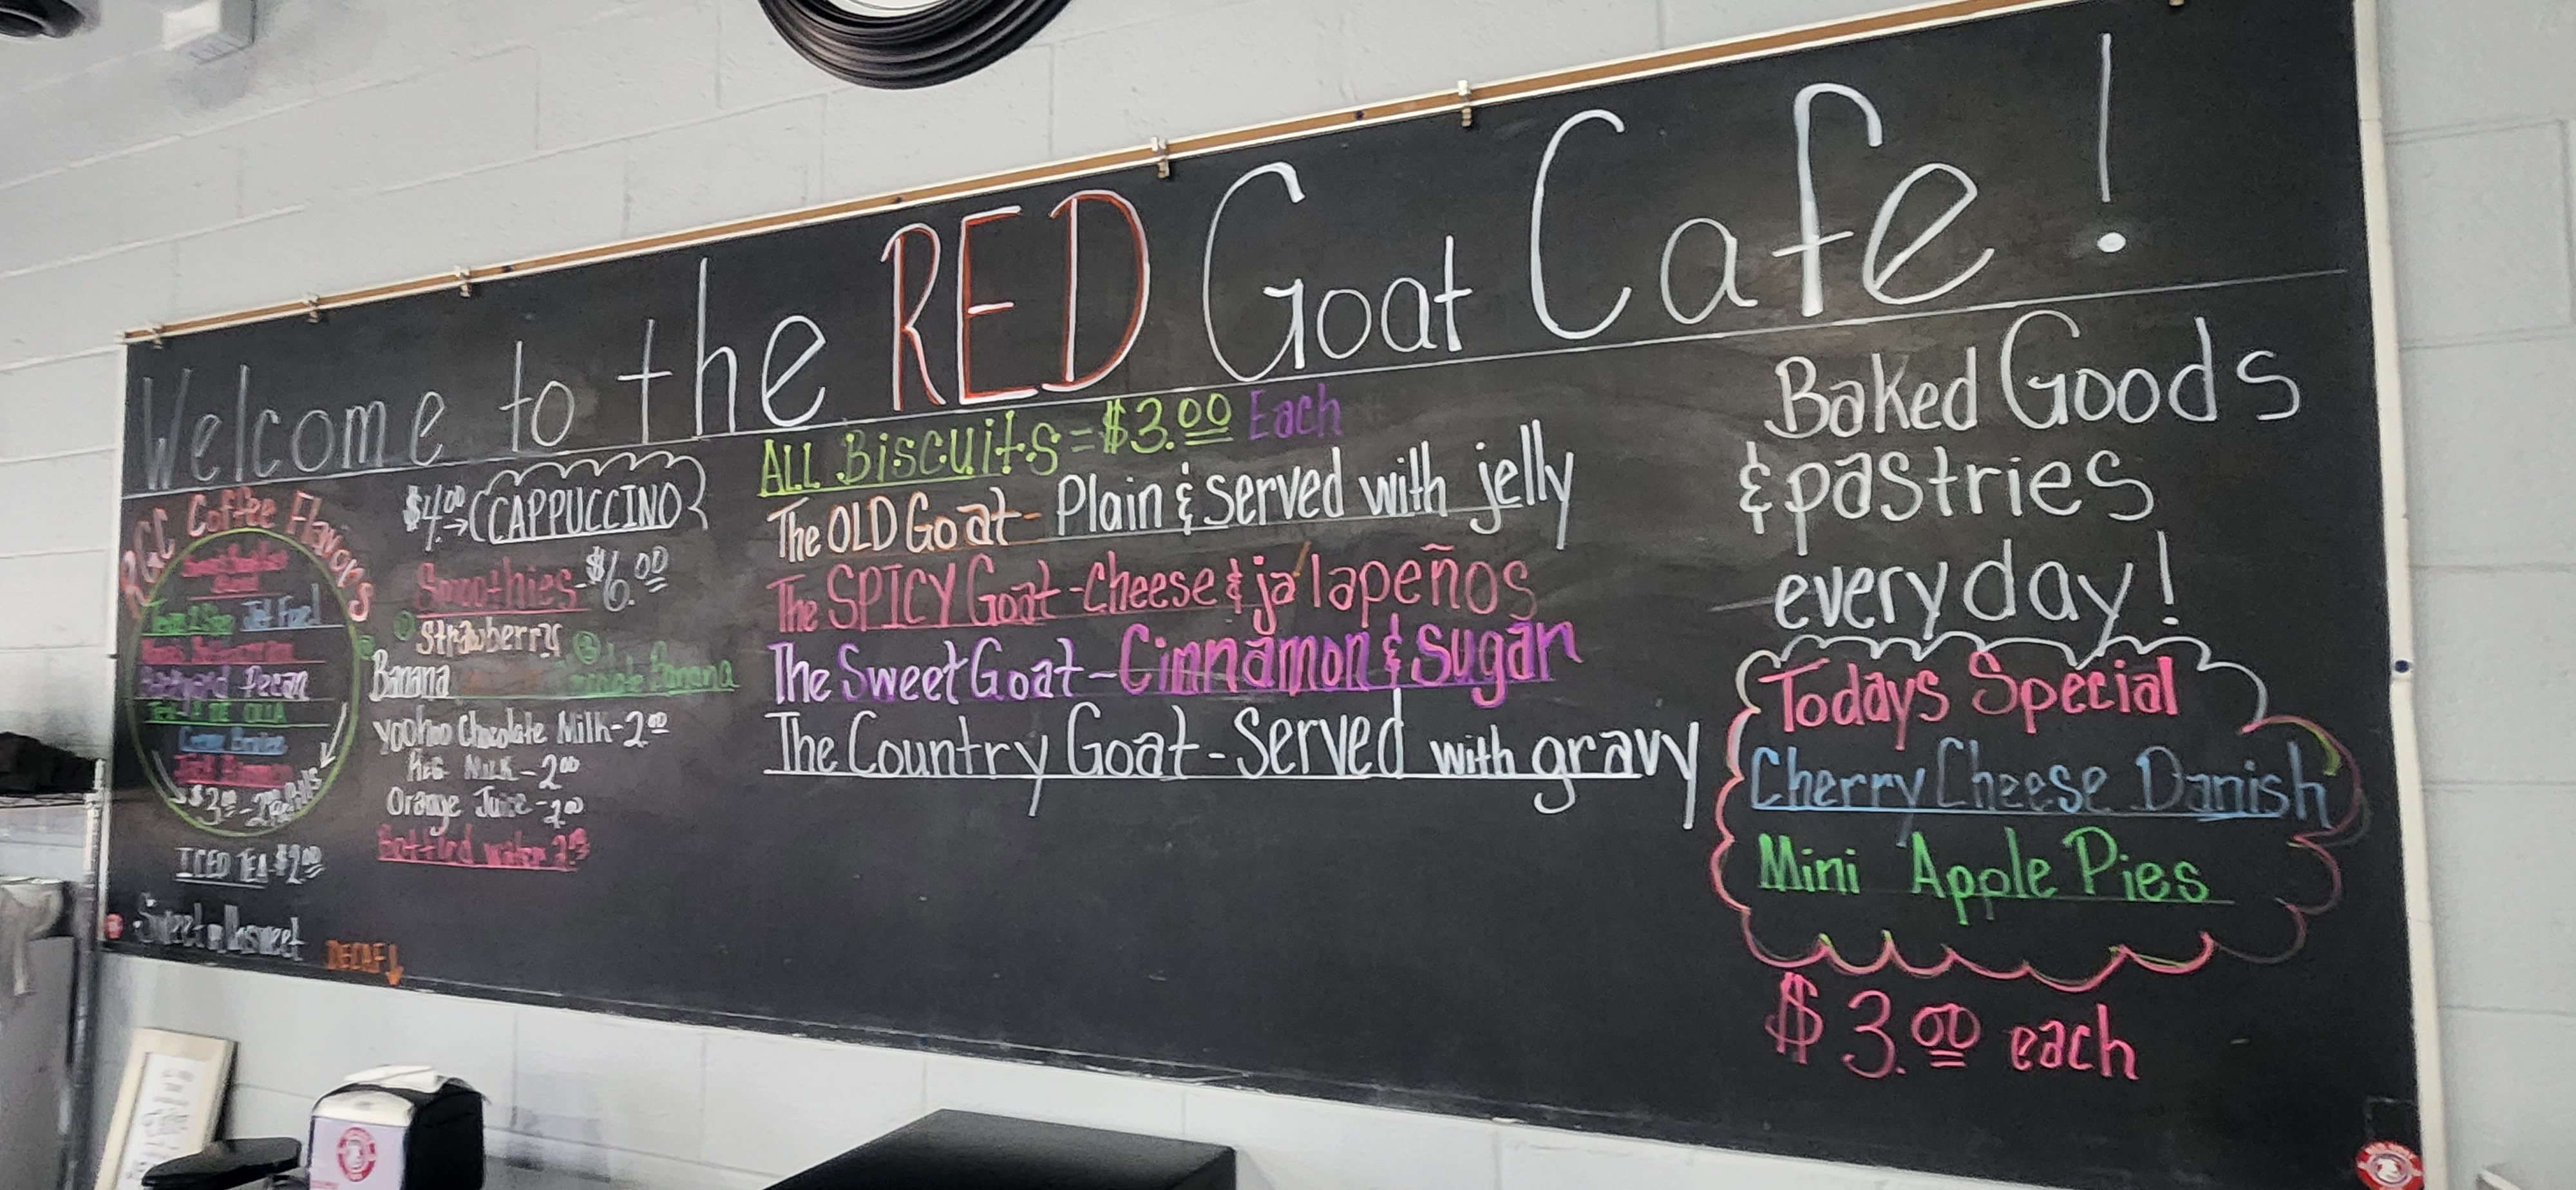 Welcome to the RED Goat Cafe!
RGC Coffee Flavors
Jet Fuel
Pecan
DE OLLA
$3.00
ICED TEA-$2.00
Sweet or Unsweet
DECAF↓
$4.00→ CAPPUCCINO
Smoothies-$6.00
Strawberry
Banana
Banana
Yoohoo Chocolate Milk-2.00
Milk-2.00
Orange Juice-2.00
Bottled water
ALL Biscuits=$3.00 Each
The OLD Goat- Plain & served with jelly
The SPICY Goat-Cheese & jalapeños
The Sweet Goat-Cinnamon & sugar
The Country Goat-Served with gravy
Baked Goods
& pastries
everyday!
Todays Special
Cherry Cheese Danish
Mini Apple Pies
$3.00 each